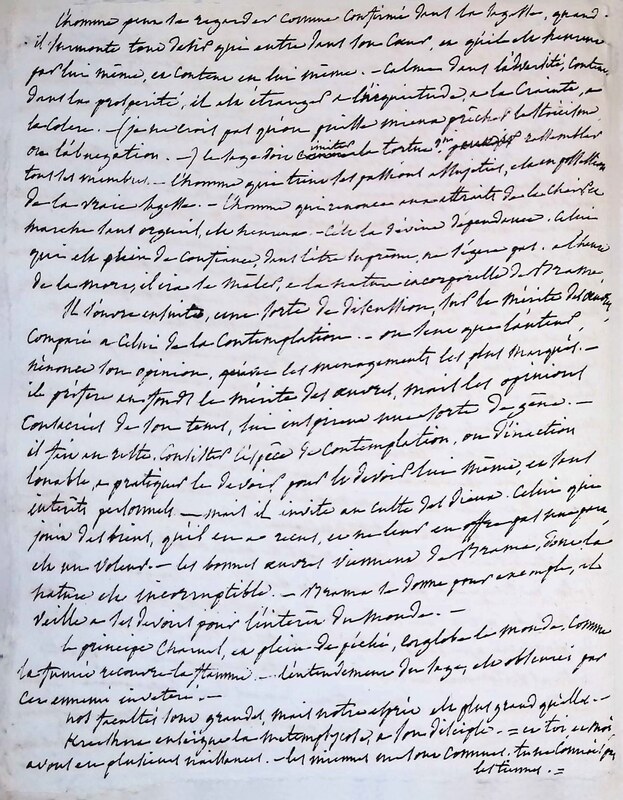 L'homme peut se regarder comme confirmé dans la sagesse, quand
il surmonte tout désir qui entre dans son cœur, et qu'il est heureux
par lui même, et content en lui même. – Calme dans l'adversité, content
dans la prosperité, il est étranger a l'inquietude, a la crainte, a
la colere. – (je ne crois pas qu'on puisse mieux prêcher le stoicisme
ou l'abnegation. –) le sage doit imiter la tortue qui rassembler
tous ses membres. – L'homme qui tient ses passions assujeties, est en possession
de la vraie sagesse. – L'homme qui renonce aux attraits de la chair et
marche sans orgueil, est heureux. – C'est la divine dépendance. Celui
qui est plein de confiance dans l'être suprême, ne s'égare pas. a l'heure
de la mort, il ira se mêler, a la nature incorporelle de Brama.
Il s'ouvre ensuite, une sorte de discussion, sur le mérite des œuvres
comparé a celui de la contemplation. – on sent que l'auteur,
n'énonce son opinion, qu'avec les menagements les plus marqués. –
il préfere au fonds le mérite des œuvres, mais les opinions
consacrées de son tems, lui inspirent une sorte de gêne. –
il fait au reste, consister l'espèce de contemplation, ou d'inaction
louable, a pratiquer le devoir pour le devoir lui même, et sans
intérêts personnels – mais il invite au culte des dieux. Celui qui
jouit des biens, qu'il en a reçus, et ne leur en offre pas une part
est un voleur. – les bonnes œuvres viennent de Brama, dont la
nature est incorruptible. – Brama se donne pour exemple, il
veille a ses devoirs pour l'intérêt du monde. –
Le principe charnel, et plein de péché, englobe le monde, comme
la fumée recouvre la flamme. – l'entendement du sage, est obscurci par
cet ennemi invétéré. –
nos facultés sont grandes, mais notre esprit est plus grand qu'elles. –
Kreshna enseigne la metempsycose, a son disciple. – et toi et moi
avons eu plusieurs naissances. – les miennes me sont connues. tu ne connais pas
les tiennes. =